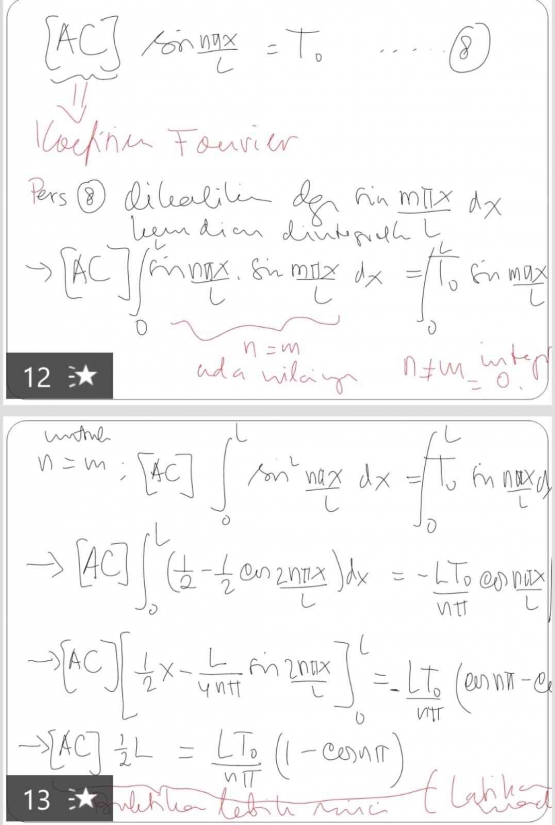 [AC] sin nπx/L = T₀ ..... (8)
Koefisien Fourier
Pers (8) dikalikan dgn sin mπx/L dx
kemudian diintegralk
→ [AC] ∫₀ᴸ sin nπx/L . sin mπx/L dx = ∫₀ᴸ T₀ sin mπx/L
n = m
ada nilainya
n ≠ m integr = 0.
12
untuk
n = m ; [AC] ∫₀ᴸ sin² nπx/L dx = ∫₀ᴸ T₀ sin nπx/L d
→ [AC] ∫₀ᴸ (1/2 - 1/2 cos 2nπx/L) dx = - LT₀/nπ cos nπx/L
→ [AC] [1/2 x - L/4nπ sin 2nπx/L]₀ᴸ = - LT₀/nπ (cos nπ - co
→ [AC] 1/2 L = LT₀/nπ (1 - cos nπ)
13
lebih rinci (Latihan